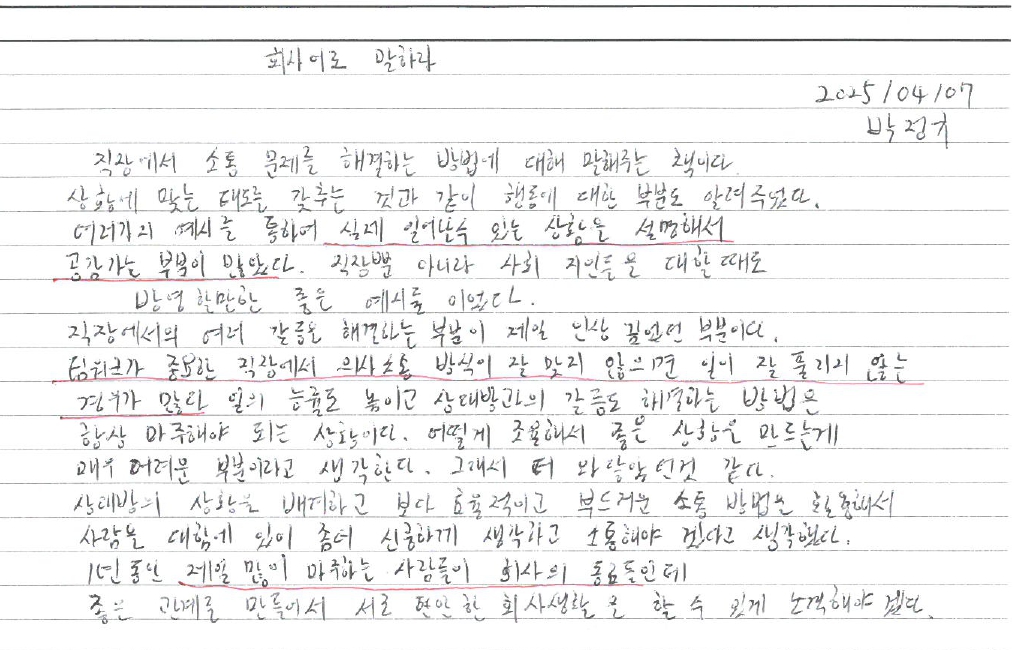 회사어로 말하라
2025/04/07
박정
직장에서 소통 문제를 해결하는 방법에 대해 말해주는 책이다.
상황에 맞는 태도를 갖추는 것과 같이 행동에 대한 부분도 알려주었다.
여러가지 예시를 통하여 실제 일어날수 있는 상황을 설명해서
공감가는 부분이 많았다. 직장뿐 아니라 사회 지인들을 대할때도
반영할만한 좋은 예시들 이었다.
직장에서의 여러 갈등을 해결하는 부분이 제일 인상 깊었던 부분이다.
팀워크가 중요한 직장에서 의사소통 방식이 잘 맞지 않으면 일이 잘 풀리지 않는
경우가 많다 일의 능률도 높이고 상대방과의 갈등도 해결하는 방법은
항상 마주해야 되는 상황이다. 어떻게 조율해서 좋은 상황을 만드는게
매우 어려운 부분이라고 생각한다. 그래서 더 와닿았던것 같다.
상대방의 상황을 배려하고 보다 효율적이고 부드러운 소통 방법을 활용해서
사람을 대함에 있어 좀더 신중하게 생각하고 소통해야 겠다고 생각했다.
1년 동안 제일 많이 마주하는 사람들이 회사의 동료들인데
좋은 관계를 만들어서 서로 편안한 회사생활을 할 수 있게 노력해야겠다.